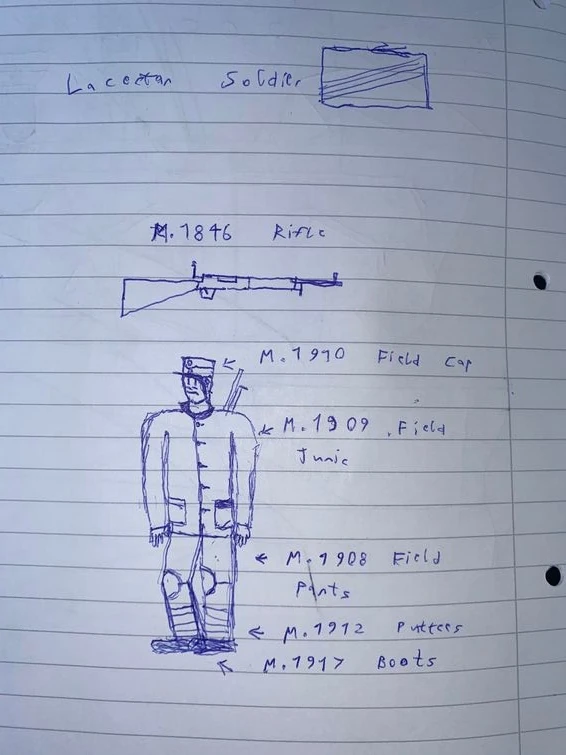 Lacectan Soldier
M.1846 Rifle
M.1910 Field Cap
M.1909 Field
Tunic
M.1908 Field
Pants
M.1912 Puttees
M.1917 Boots